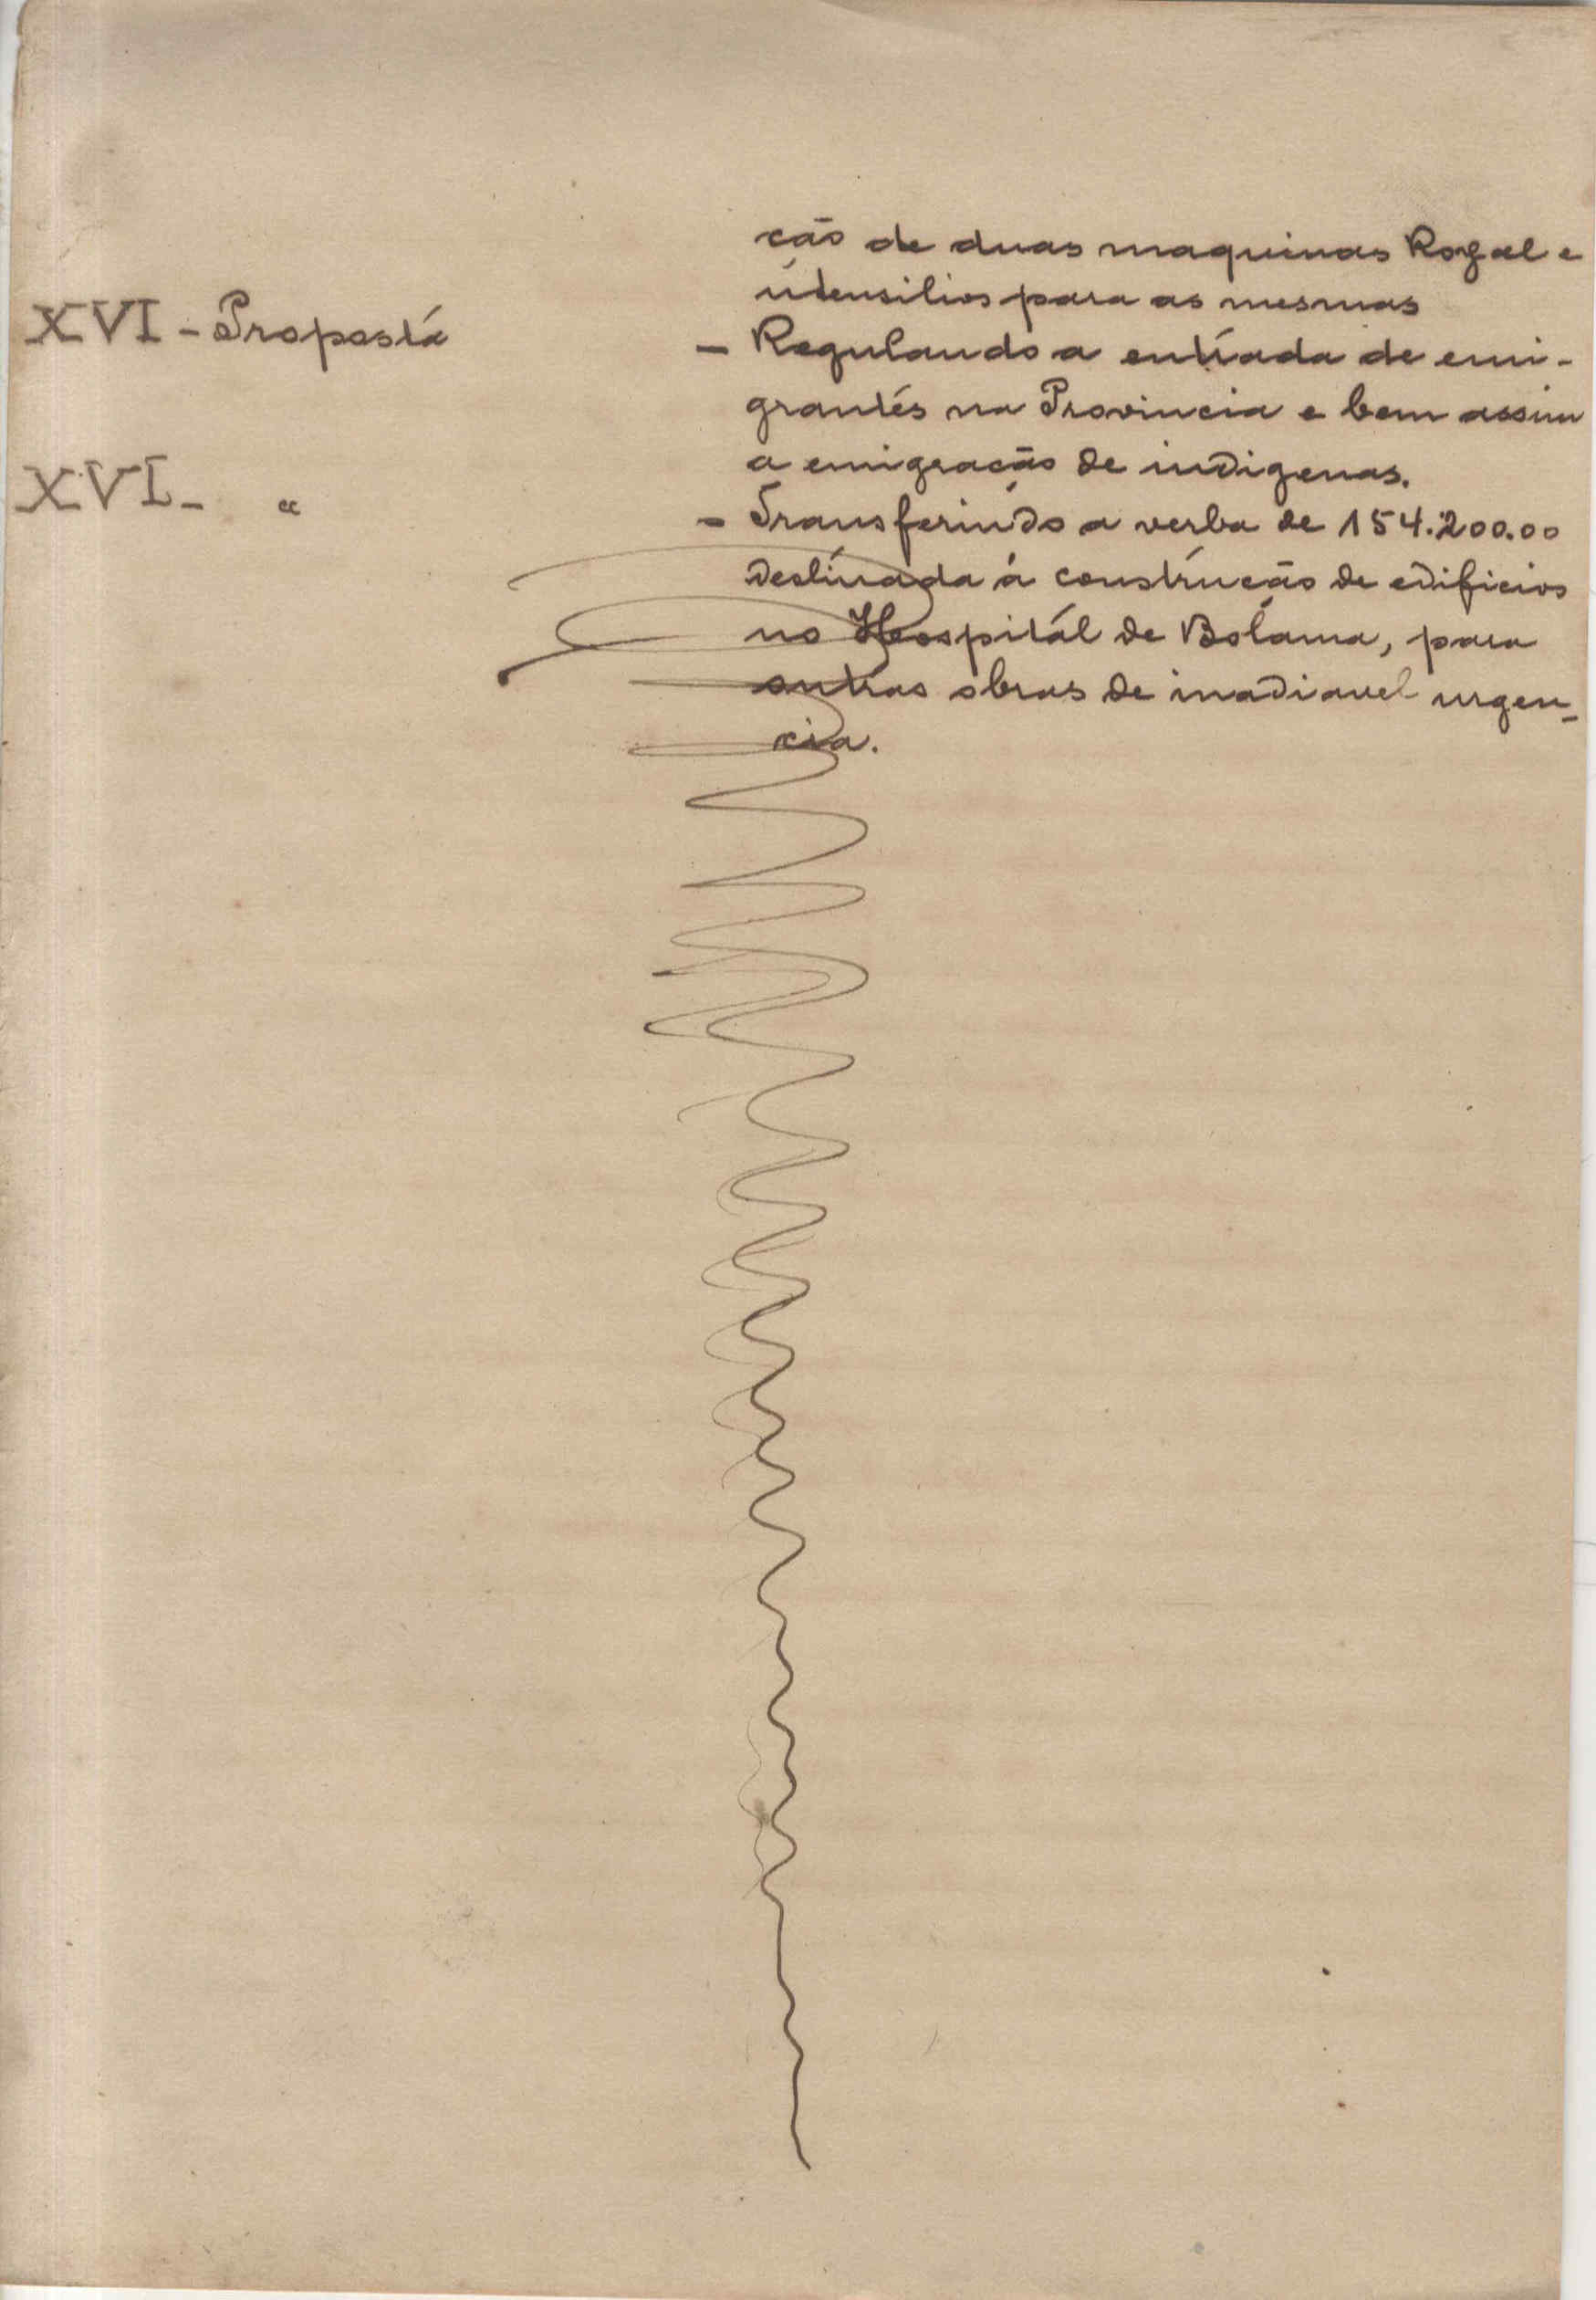 ção de duas maquinas Royal e
utensilios para as mesmas
XVI - Proposta
- Regulando a entrada de emi-
grantes na Provincia e bem assim
a emigração de indigenas.
XVI - "
- Transferindo a verba de 154.200.00
destinada à construção de edificios
no Hospital de Bolama, para
outras obras de inadiavel urgen-
cia.